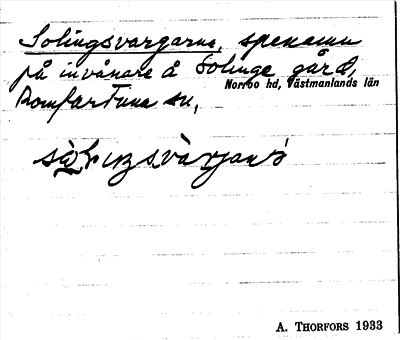 Solingsvargarna, spenamn
på invånare å Solinge gård,
Norrbo hd, Västmanlands län
Romfartuna sn,
A. THORFORS 1933